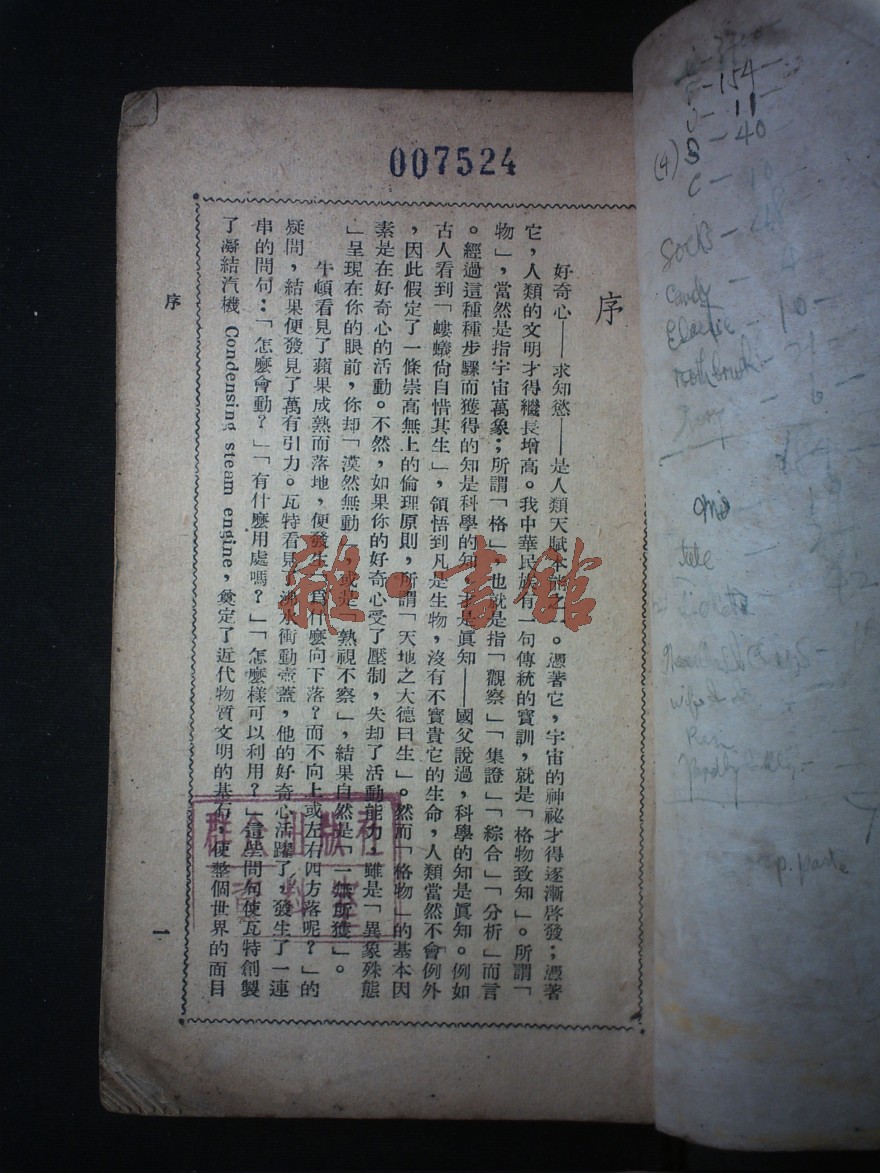 007524
序
好奇心——求知慾——是人類天賦本能之一。憑著它，宇宙的神祕才得逐漸啓發；憑著
它，人類的文明才得纔長增高。我中華民族有一句傳統的寶訓，就是「格物致知」。所謂「
物」，當然是指宇宙萬象；所謂「格」，也就是指「觀察」「集證」「綜合」「分析」而言
。經過這種種步驟而獲得的知是科學的知，才是真知——國父說過，科學的知是眞知。例如
古人看到「螻蟻尙自惜其生」，領悟到凡是生物，沒有不寶貴它的生命，人類當然不會例外
，因此假定了一條崇高無上的倫理原則，所謂「天地之大德曰生」。然而「格物」的基本因
素是在好奇心的活動。不然，如果你的好奇心受了壓制，失却了活動能力，雖是「異象殊態
」呈現在你的眼前，你却「漠然無動」或是「熟視不察」，結果自然是「一無所獲」。
牛頓看見了蘋果成熟而落地，便發生「爲什麼向下落？而不向上或左右四方落呢？」的
疑問，結果便發見了萬有引力。瓦特看見了沸水衝動壺蓋，他的好奇心活躍了，發生了一連
串的問句：「怎麼會動？」「有什麼用處嗎？」「怎麼樣可以利用？」這些問句使瓦特創製
了凝結汽機 Condensing steam engine，奠定了近代物質文明的基石，使整個世界的面目
序
一
雜·書館
群众出版社
資料室
154
11
(4) S - 40
C - 10
Socks
Candy
Elastic - 10
tele
p. paste